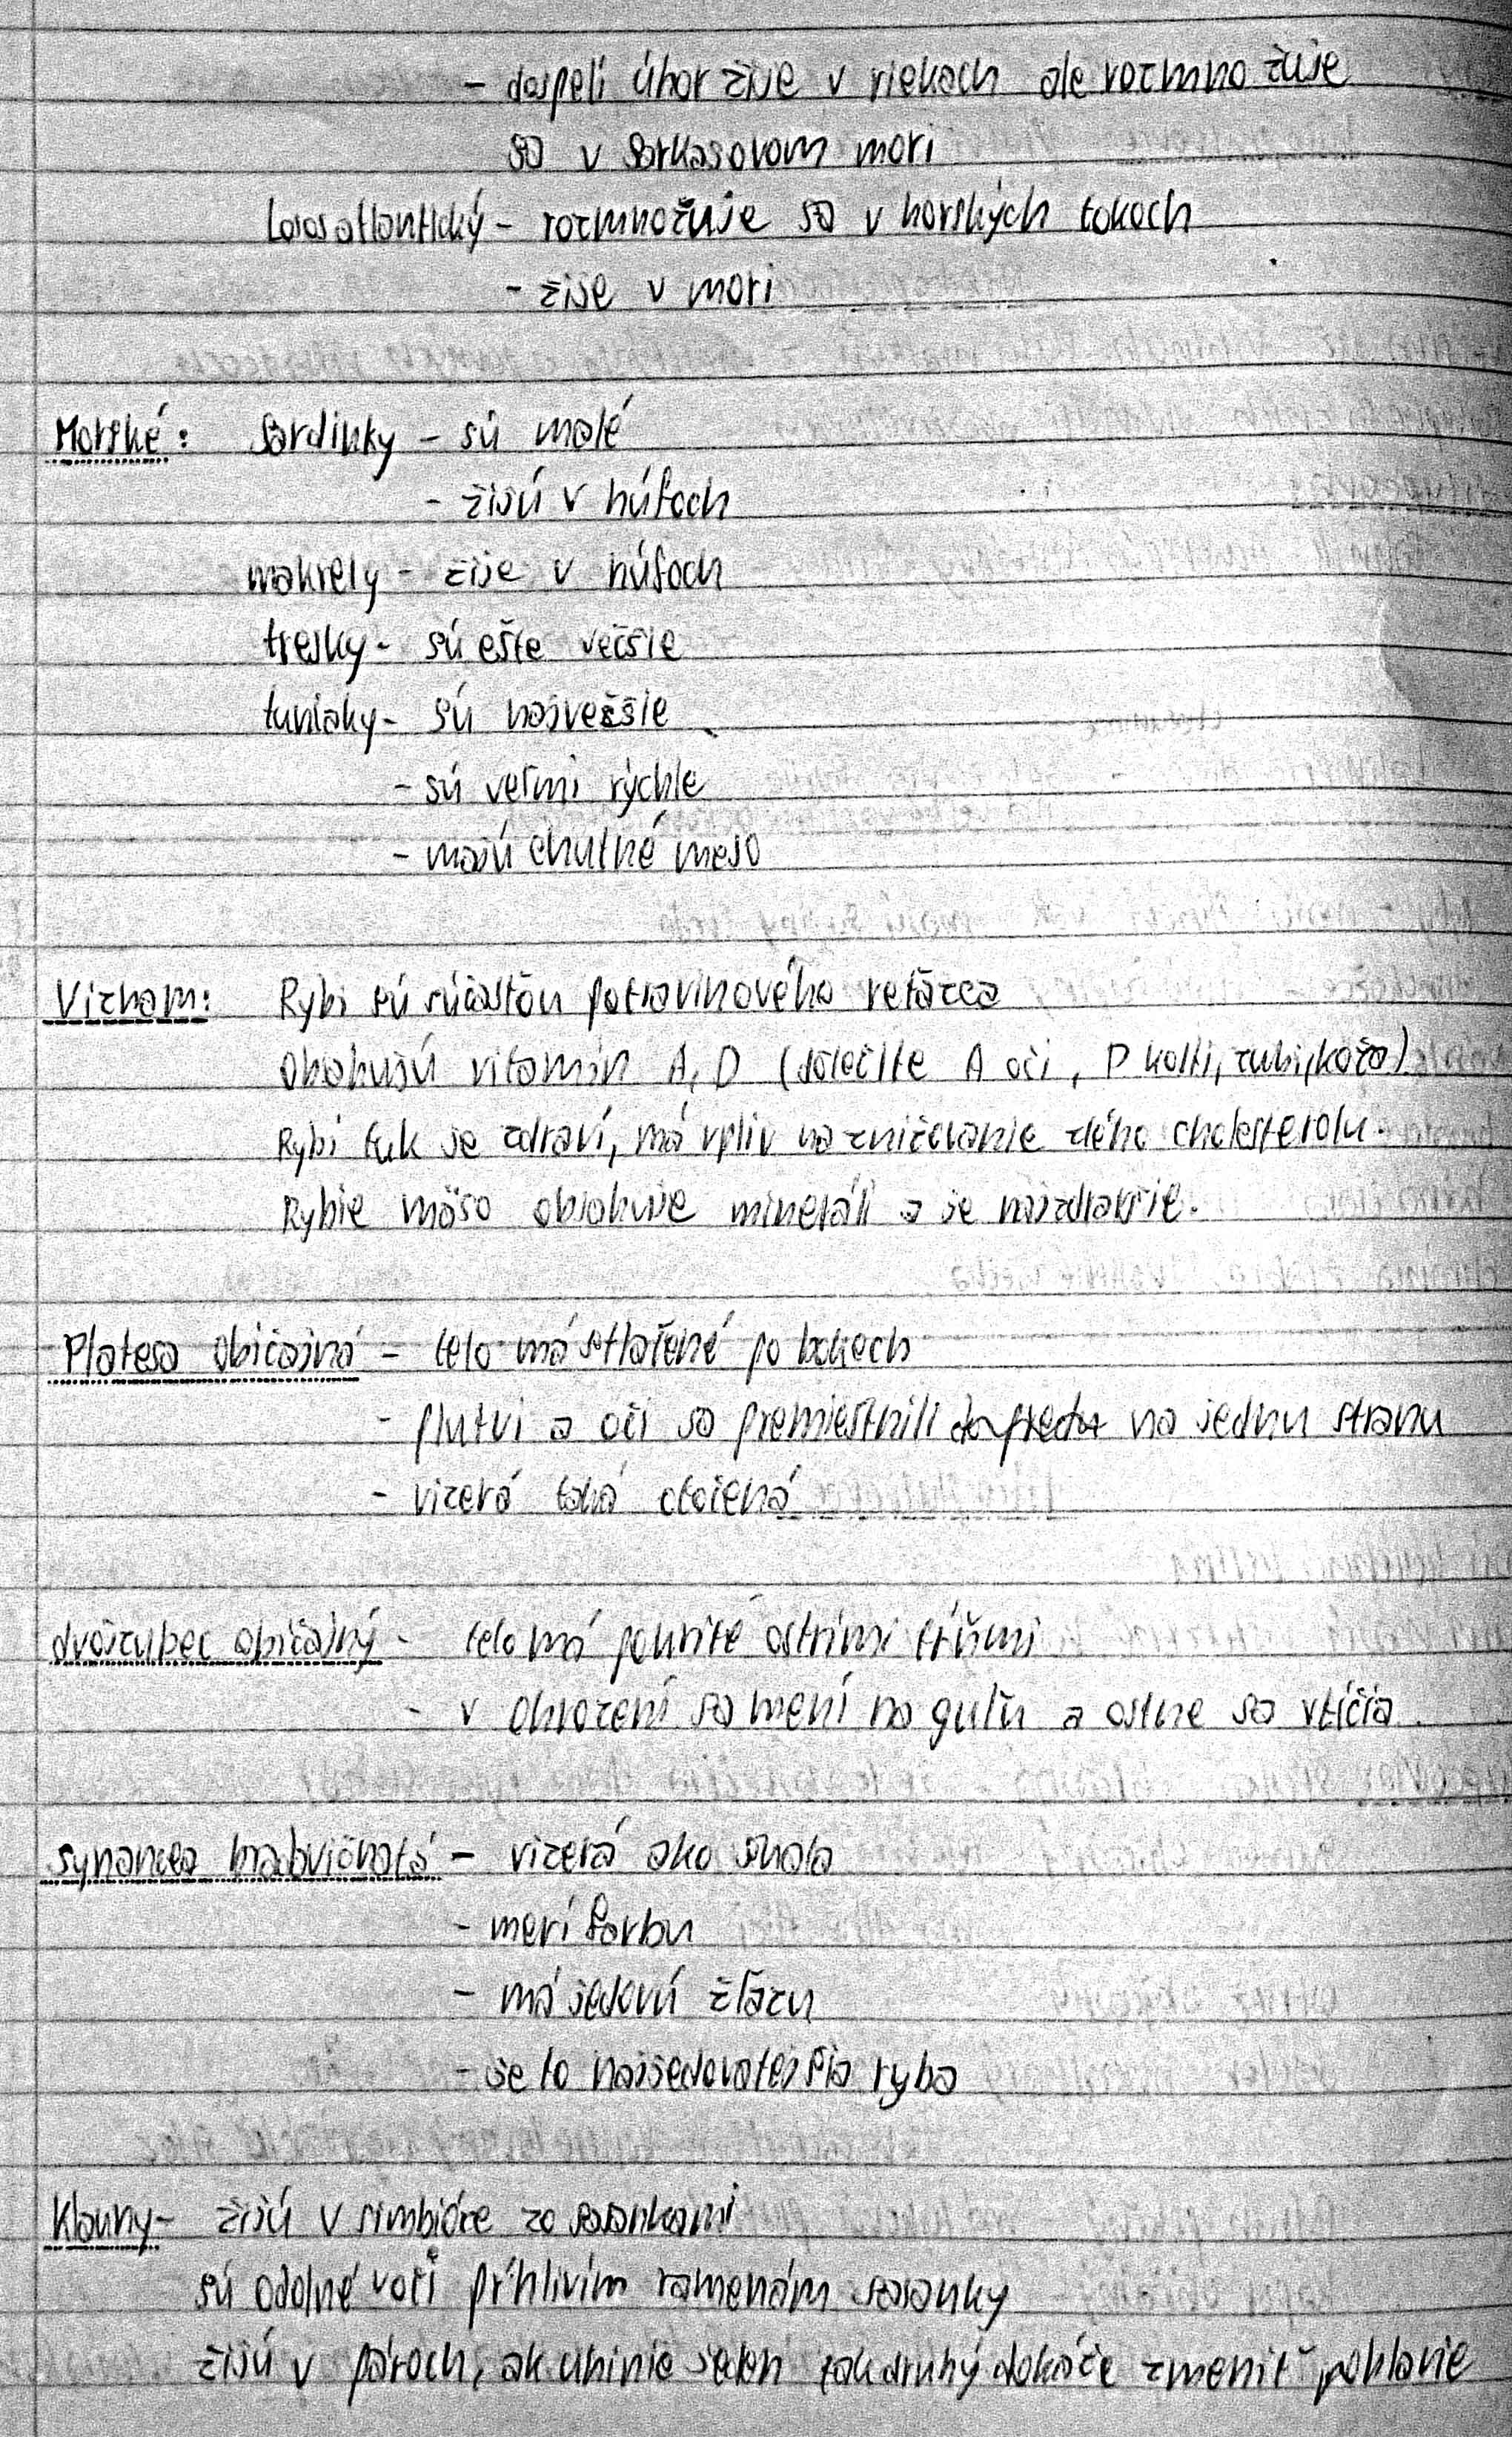 - dospelí úhor žije v riekach ale rozmnožuje
sa v sarkasovom mori
Losos atlantický - rozmnožuje sa v horských tokoch
- žije v mori
Morské: Sardinky - sú malé
- žijú v húfoch
makrely - žije v húfoch
tresky - sú ešte večšie
tuniaky - sú največšie
- sú veľmi rýchle
- majú chutné meso
Viznam: Rybi sú súčasťou potravinového reťazca
Obsahujú vitamín A, D (dôležité A oči, D kosti, zubi, koža)
Rybí tuk je zdraví, má vpliv na zničovanie zlého cholesterolu.
Rybie mäso obsahuje mineráli a je najzdravšie.
Platesa običajná - telo má stlačené po bokoch
- plutvi a oči sa premiestnili na jednu stranu
- vizerá taká otočená
dvojzubec običajný - telo má pokrité ostrími tŕňmi
- v ohrození sa mení na guľu a ostne sa vtíčia
synancea bradvičnatá - vizerá ako skala
- mení farbu
- má jedovú žľazu
- je to najjedovatejšia ryba
Klauny - žijú v simbióze zo sasankami
sú odolné voči pŕhlivím ramenám sasanky
žijú v pároch, ak uhinie jeden tak druhý dokáže zmeniť pohlavie